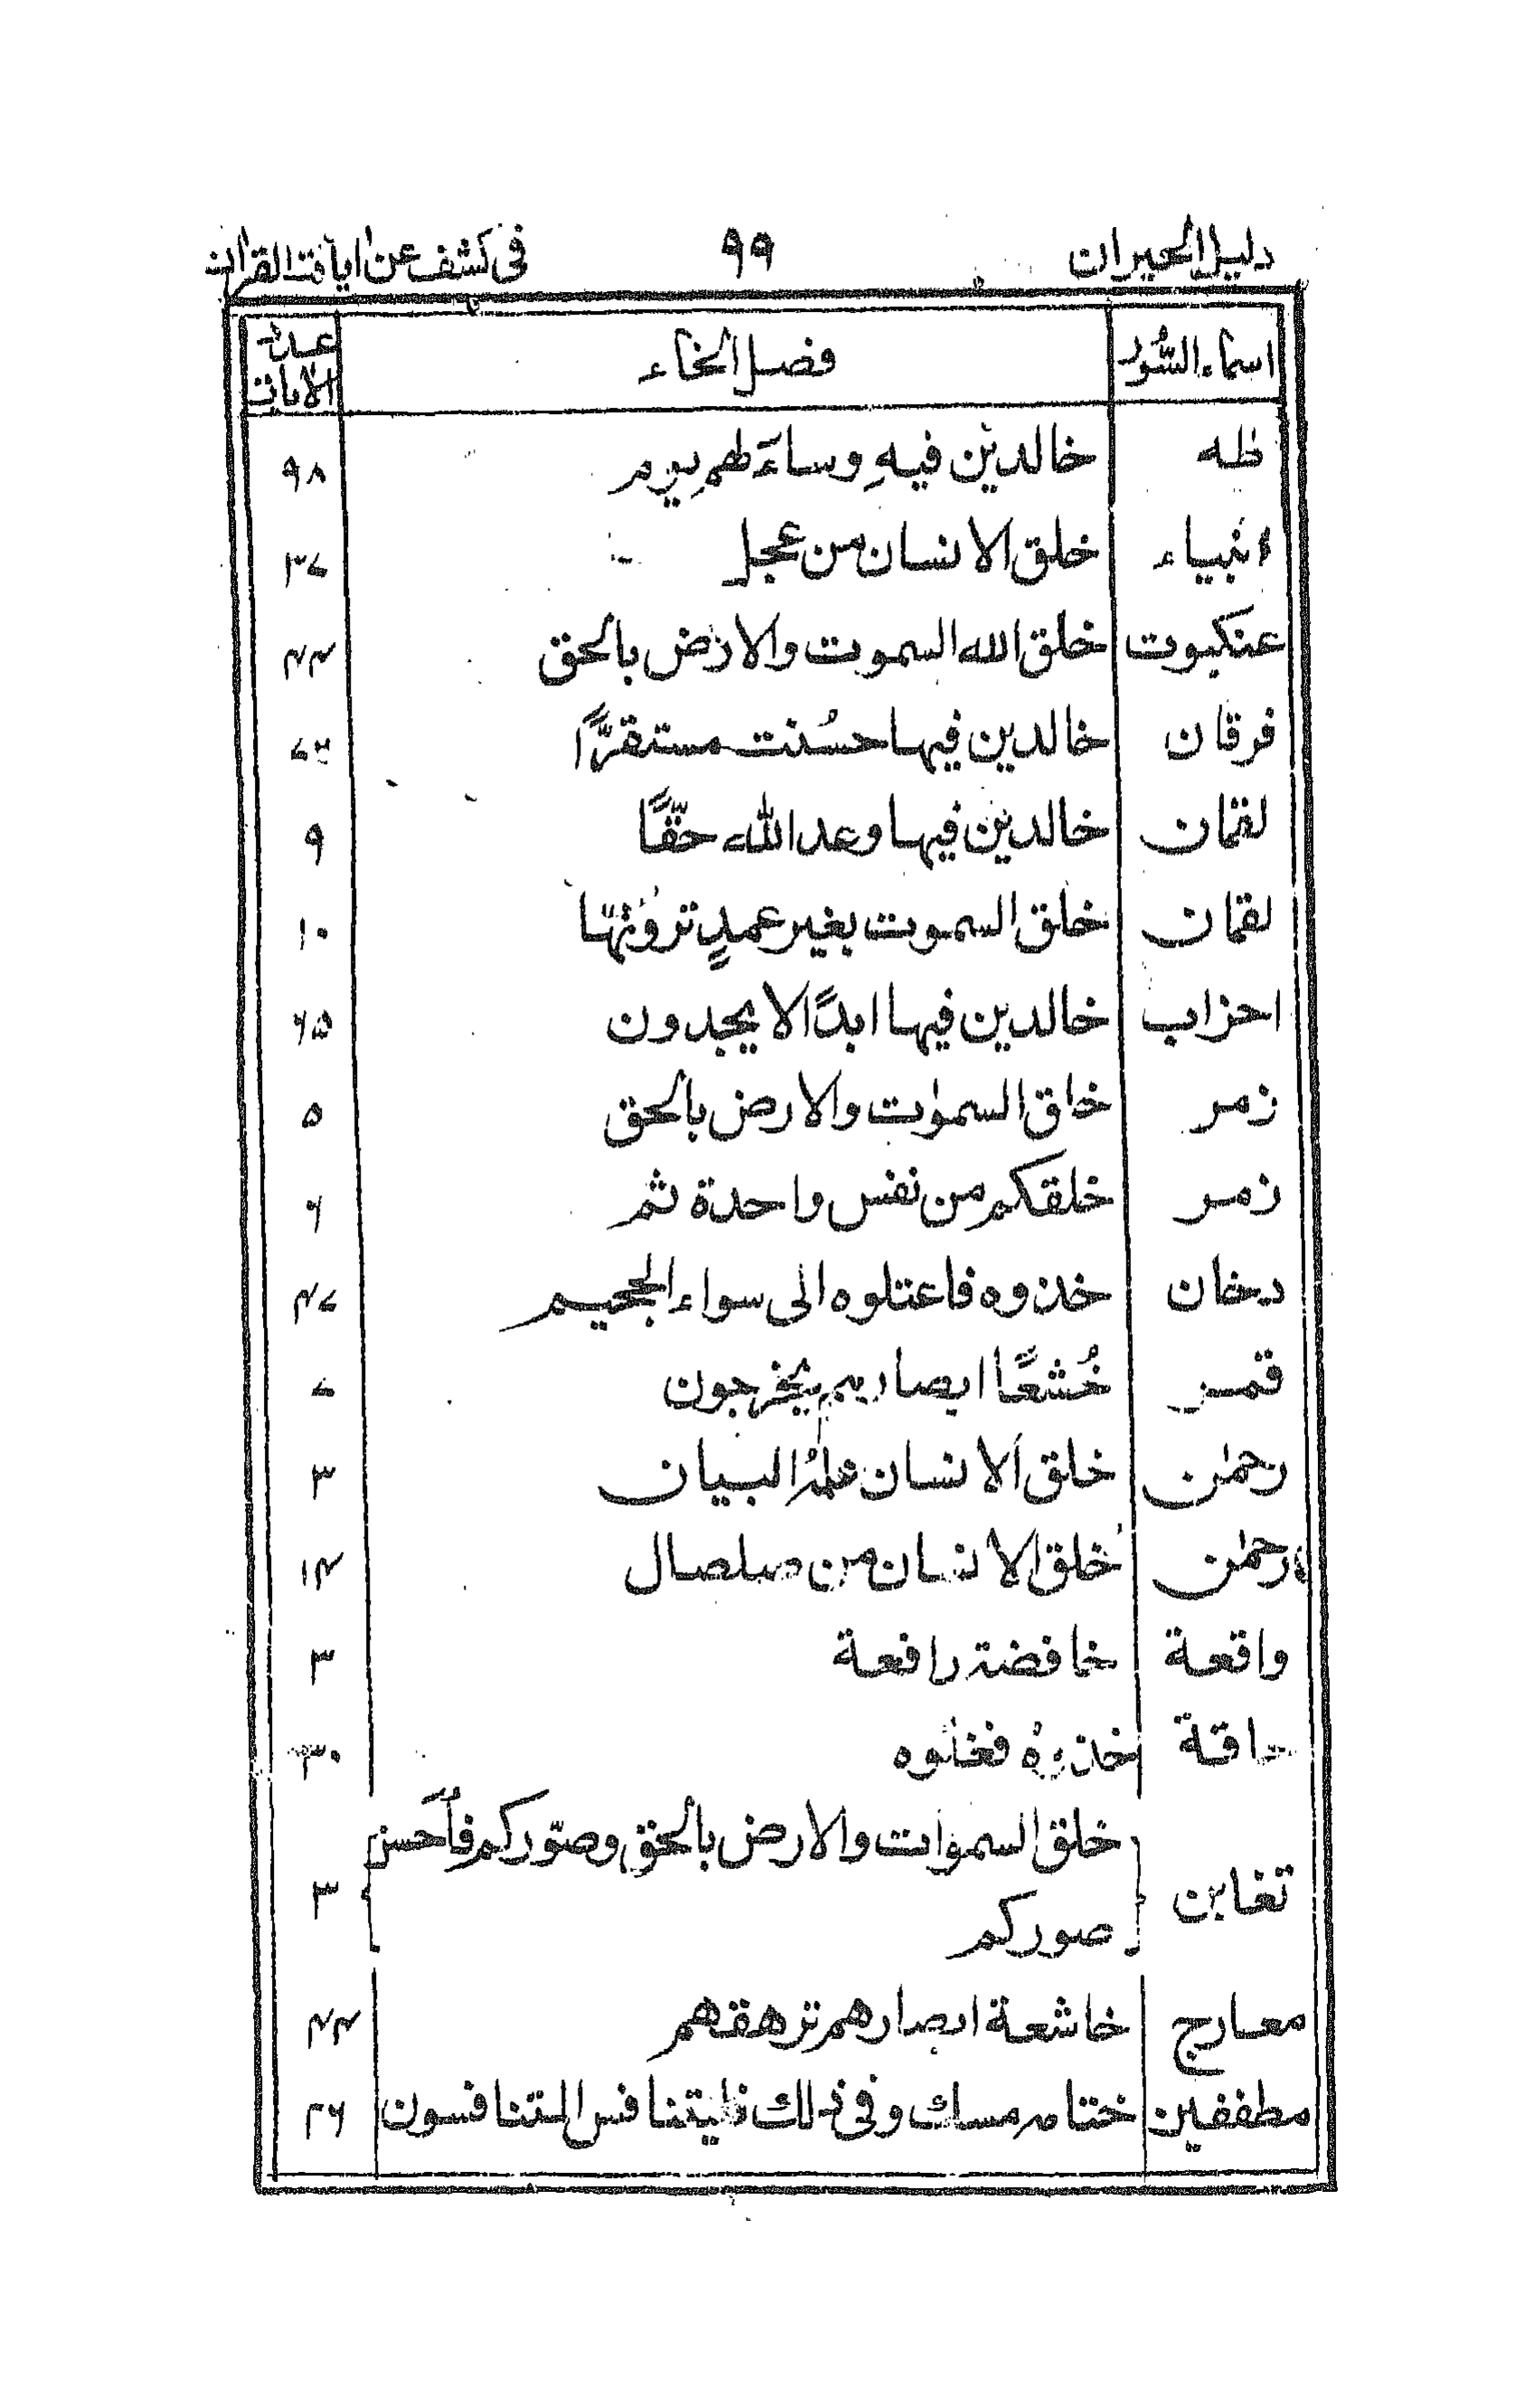 دليل الحيران ٩٩ فى كشف عن ايات القران
اسماء السُّور فصل الخاء عدد الايات
طٰه خالدين فيهِ وساءَ لهم يوم ٩٨
انبياء خلق الانسان من عجل ٣٧
عنكبوت خلق الله السموت والارض بالحق ٤٤
فرقان خالدين فيها حسُنت مستقرًّا ٧٦
لقمان خالدين فيها وعد الله حقًّا ٩
لقمان خلق السموت بغير عمدٍ ترونها ١٠
احزاب خالدين فيها ابدًا لا يجدون ٦٥
زمر خلق السمٰوٰت والارض بالحق ٥
زمر خلقكم من نفس واحدة ثم ٦
دخان خذوه فاعتلوه الى سواء الجحيم ٤٧
قمر خُشعًا ابصارهم يخرجون ٧
رحمٰن خلق الانسان علمهُ البيان ٣
رحمٰن خلق الانسان من صلصال ١٤
واقعة خافضة رافعة ٣
حاقة خذوهُ فغلوه ٣٠
تغابن خلق السموات والارض بالحق وصوّركم فأحسن ٣
صوركم
معارج خاشعة ابصارهم ترهقهم ٤٤
مطففين ختامه مسك وفى ذلك فليتنافس المتنافسون ٢٦